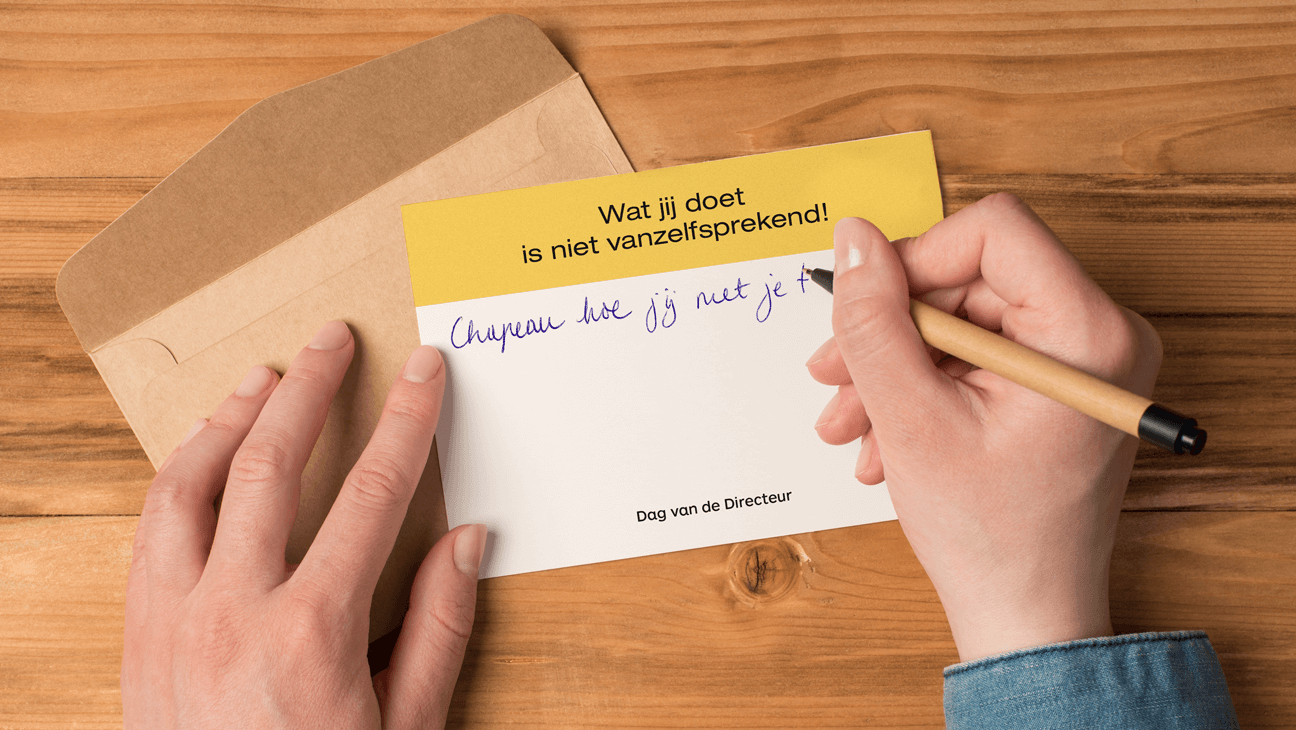 Wat jij doet
is niet vanzelfsprekend!
Chapeau hoe jij met je t
Dag van de Directeur